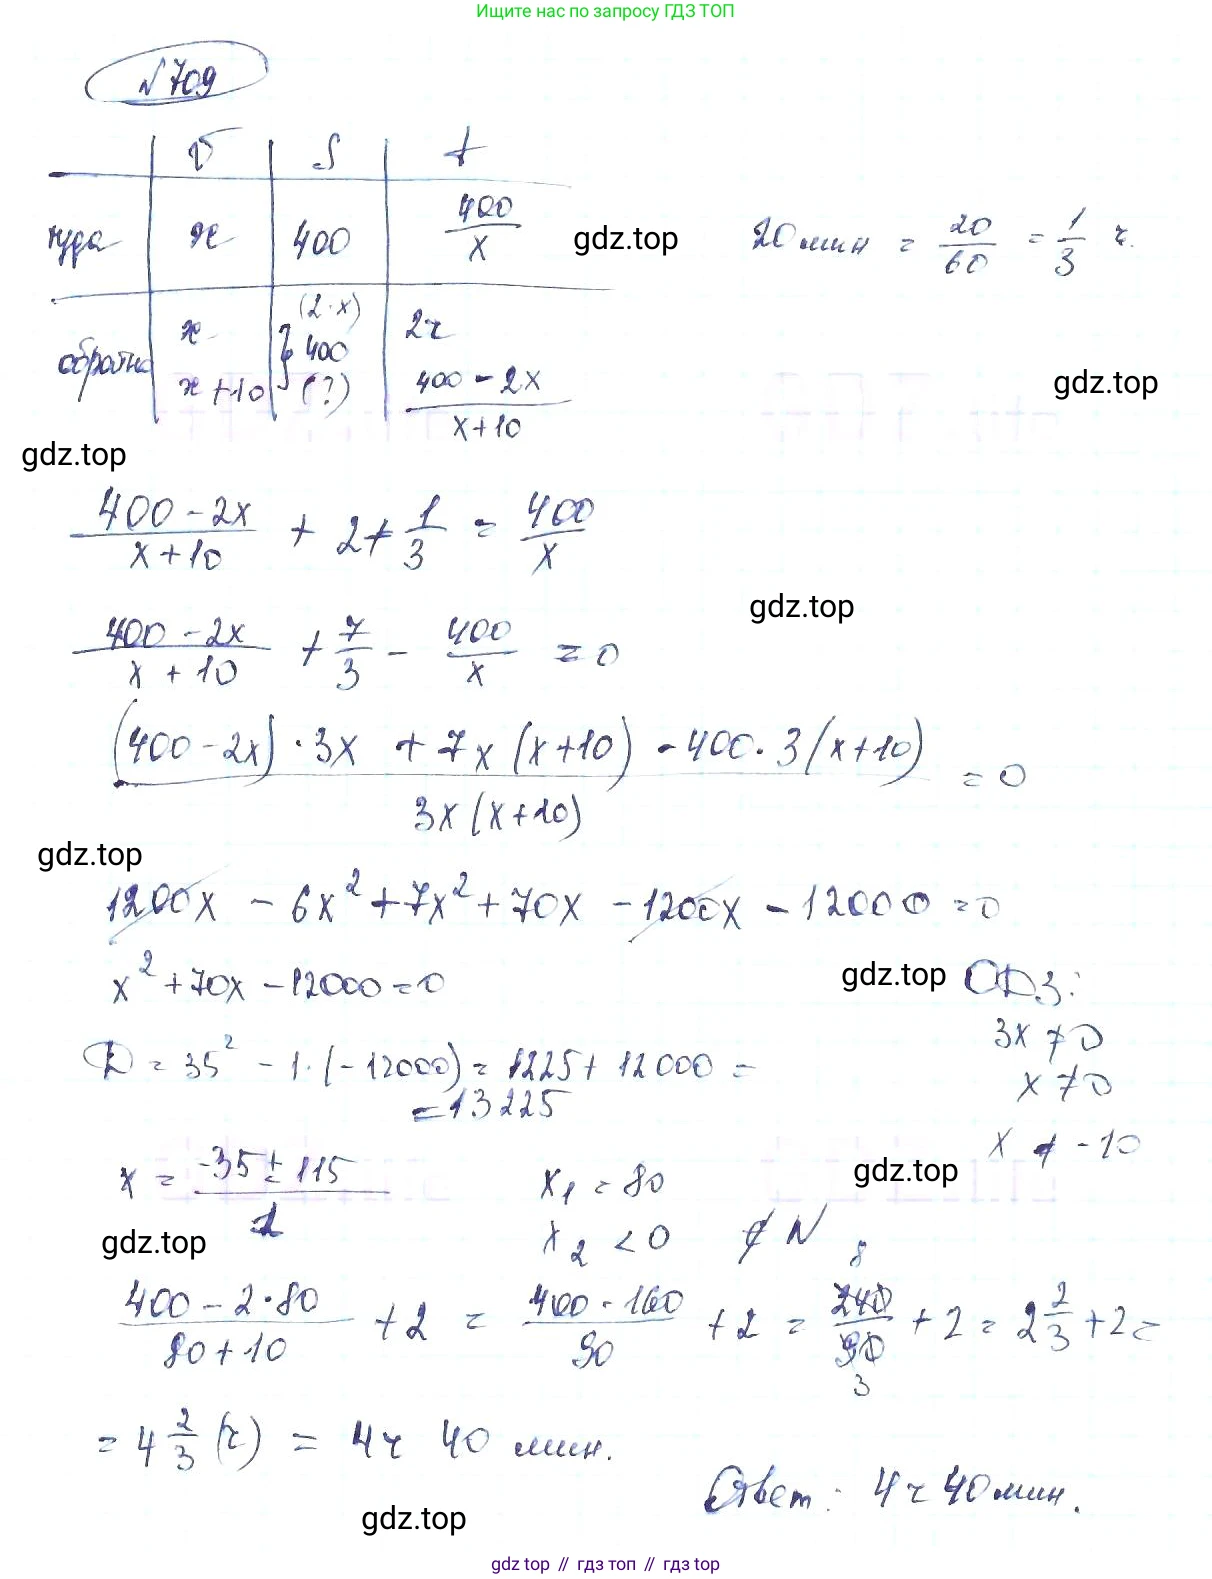 Ищите нас по запросу ГДЗ ТОП
№709
v S t
туда x 400 400/x
gdz.top
20 мин = 20/60 = 1/3 ч.
обратно x (2·x) 2ч
x+10 } 400 (?) (400-2x)/(x+10)
gdz.top
gdz.top
(400-2x)/(x+10) + 2 + 1/3 = 400/x
gdz.top
(400-2x)/(x+10) + 7/3 - 400/x = 0
((400-2x)·3x + 7x(x+10) - 400·3(x+10))/(3x(x+10)) = 0
gdz.top
1200x - 6x² + 7x² + 70x - 1200x - 12000 = 0
x² + 70x - 12000 = 0
gdz.top
ОДЗ:
3x ≠ 0
x ≠ 0
x ≠ -10
D = 35² - 1·(-12000) = 1225 + 12000 =
= 13225
x = (-35 ± 115)/1
x₁ = 80
x₂ < 0 ∉ N
gdz.top
gdz.top
(400-2·80)/(80+10) + 2 = (400-160)/90 + 2 = 240/90 + 2 = 2 2/3 + 2 =
8
3
= 4 2/3 (ч) = 4ч 40 мин.
Ответ: 4ч 40мин.
gdz.top
gdz.top // гдз топ // гдз top